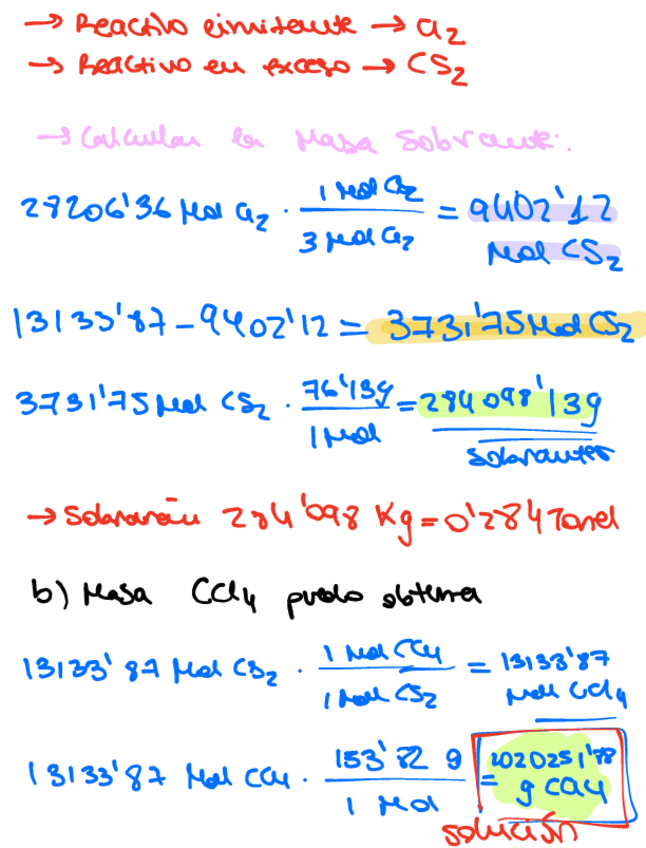 → Reactivo limitante → Cl₂
→ Reactivo en exceso → CS₂
→ Calcular la masa sobrante:
28206'36 mol Cl₂ · 1 mol Cl₂ / 3 mol Cl₂ = 9402'12 mol CS₂
13133'87 – 9402'12 = 3731'75 mol CS₂
3731'75 mol CS₂ · 76'13g / 1 mol = 284098'13g
sobrantes
→ Sobrarán 284'098 Kg = 0'284 Tonel
b) Masa CCl₄ puedo obtener
13133'87 mol CS₂ · 1 mol CCl₄ / 1 mol CS₂ = 13133'87 mol CCl₄
13133'87 mol CCl₄ · 153'82 g / 1 mol = 2020251'78 g CCl₄
solución